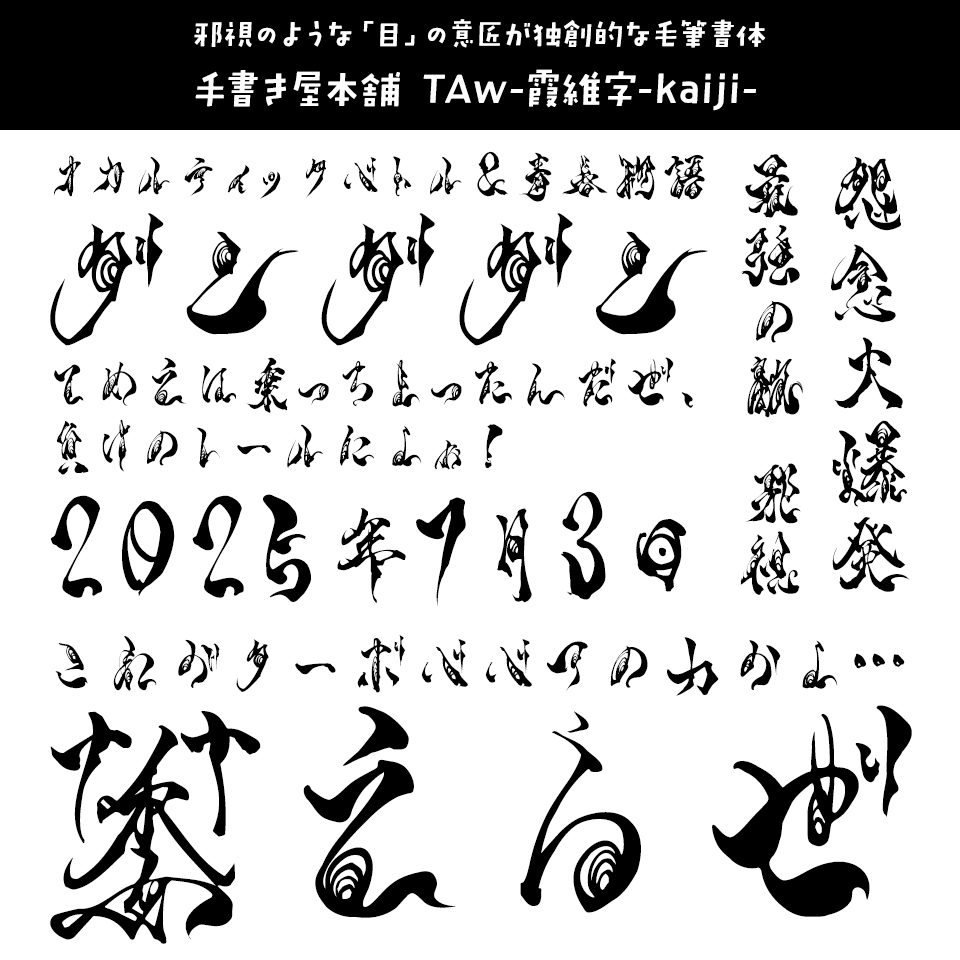 邪視のような「目」の意匠が独創的な毛筆書体
手書き屋本舗 TAw-霞維字-kaiji-
オカルティックバトル&青春物語
ダンダダン
てめえは乗っちょったんだぜ、
負けのレールによぉ!
2025年7月3日
怨念大爆発
最強の 邪視
これがターボババアの力かよ…
萎えるぜ